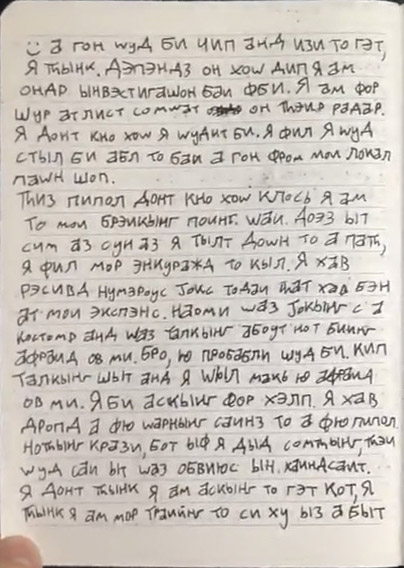 а гон шуд би чип анд изи то гэт,
Я тынк. Дэпэндз он хоw дип Я ам
ондр ынвэстигашон баи фби. Я ам фор
шур ат лист сомwат он тэир радар.
Я донт кно хоw Я wудит би. Я фил Я wуд
стыл би абл то баи а гон фром мои локал
паwн шоп.
Тиз пипол донт кно хоw клось Я ам
то мои брэикынг поинт. wаи. Доэз ыт
сим аз сун аз Я тылт доwн то а пат,
Я фил мор энкуражд то кыл. Я хав
рэсивд нумэроус јокс тодаи тат хав бэн
ат мои экспэнс. Наоми wаз јокынг с а
костомр анд wаз талкынг абоут нот биинг
афраид ов ми. Бро, ю пробабли шуд би. Кип
талкынг шыт анд Я wыл макь ю афраид
ов ми. Я би аскынг фор хэлп. Я хав
дропд а фю wарнынг саинз то а фю пипол
нотынг крази, бот ыф Я дыд сомтынг, тэи
wуд саи ыт wаз обвиюс ын. хаиндсаит.
Я донт тынк Я ам аскынг то гэт кот, Я
тынк Я ам мор траиинг то си ху ыз а быт